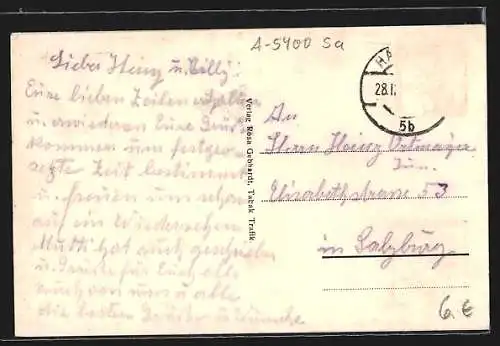 A-5400 Sa
Lieber Heinz u. Billy!
Eure lieben Zeilen erhalten
u. erwiedern Eure Grüße
kommen zum festge-
setzte Zeit bestimmt
u. freuen uns schon
auf ein Wiedersehen
Mutti hat auch geschrieben
u. Grüße für Euch alle
auch von uns u. alle
die besten Grüße u. Wünsche
Verlag Rosa Gebhardt, Tabak Trafik.
HA
28.I
5b
An
Herrn Heinz Ortmayer
Jun.
Elisabethstrasse 53
in Salzburg
6.€